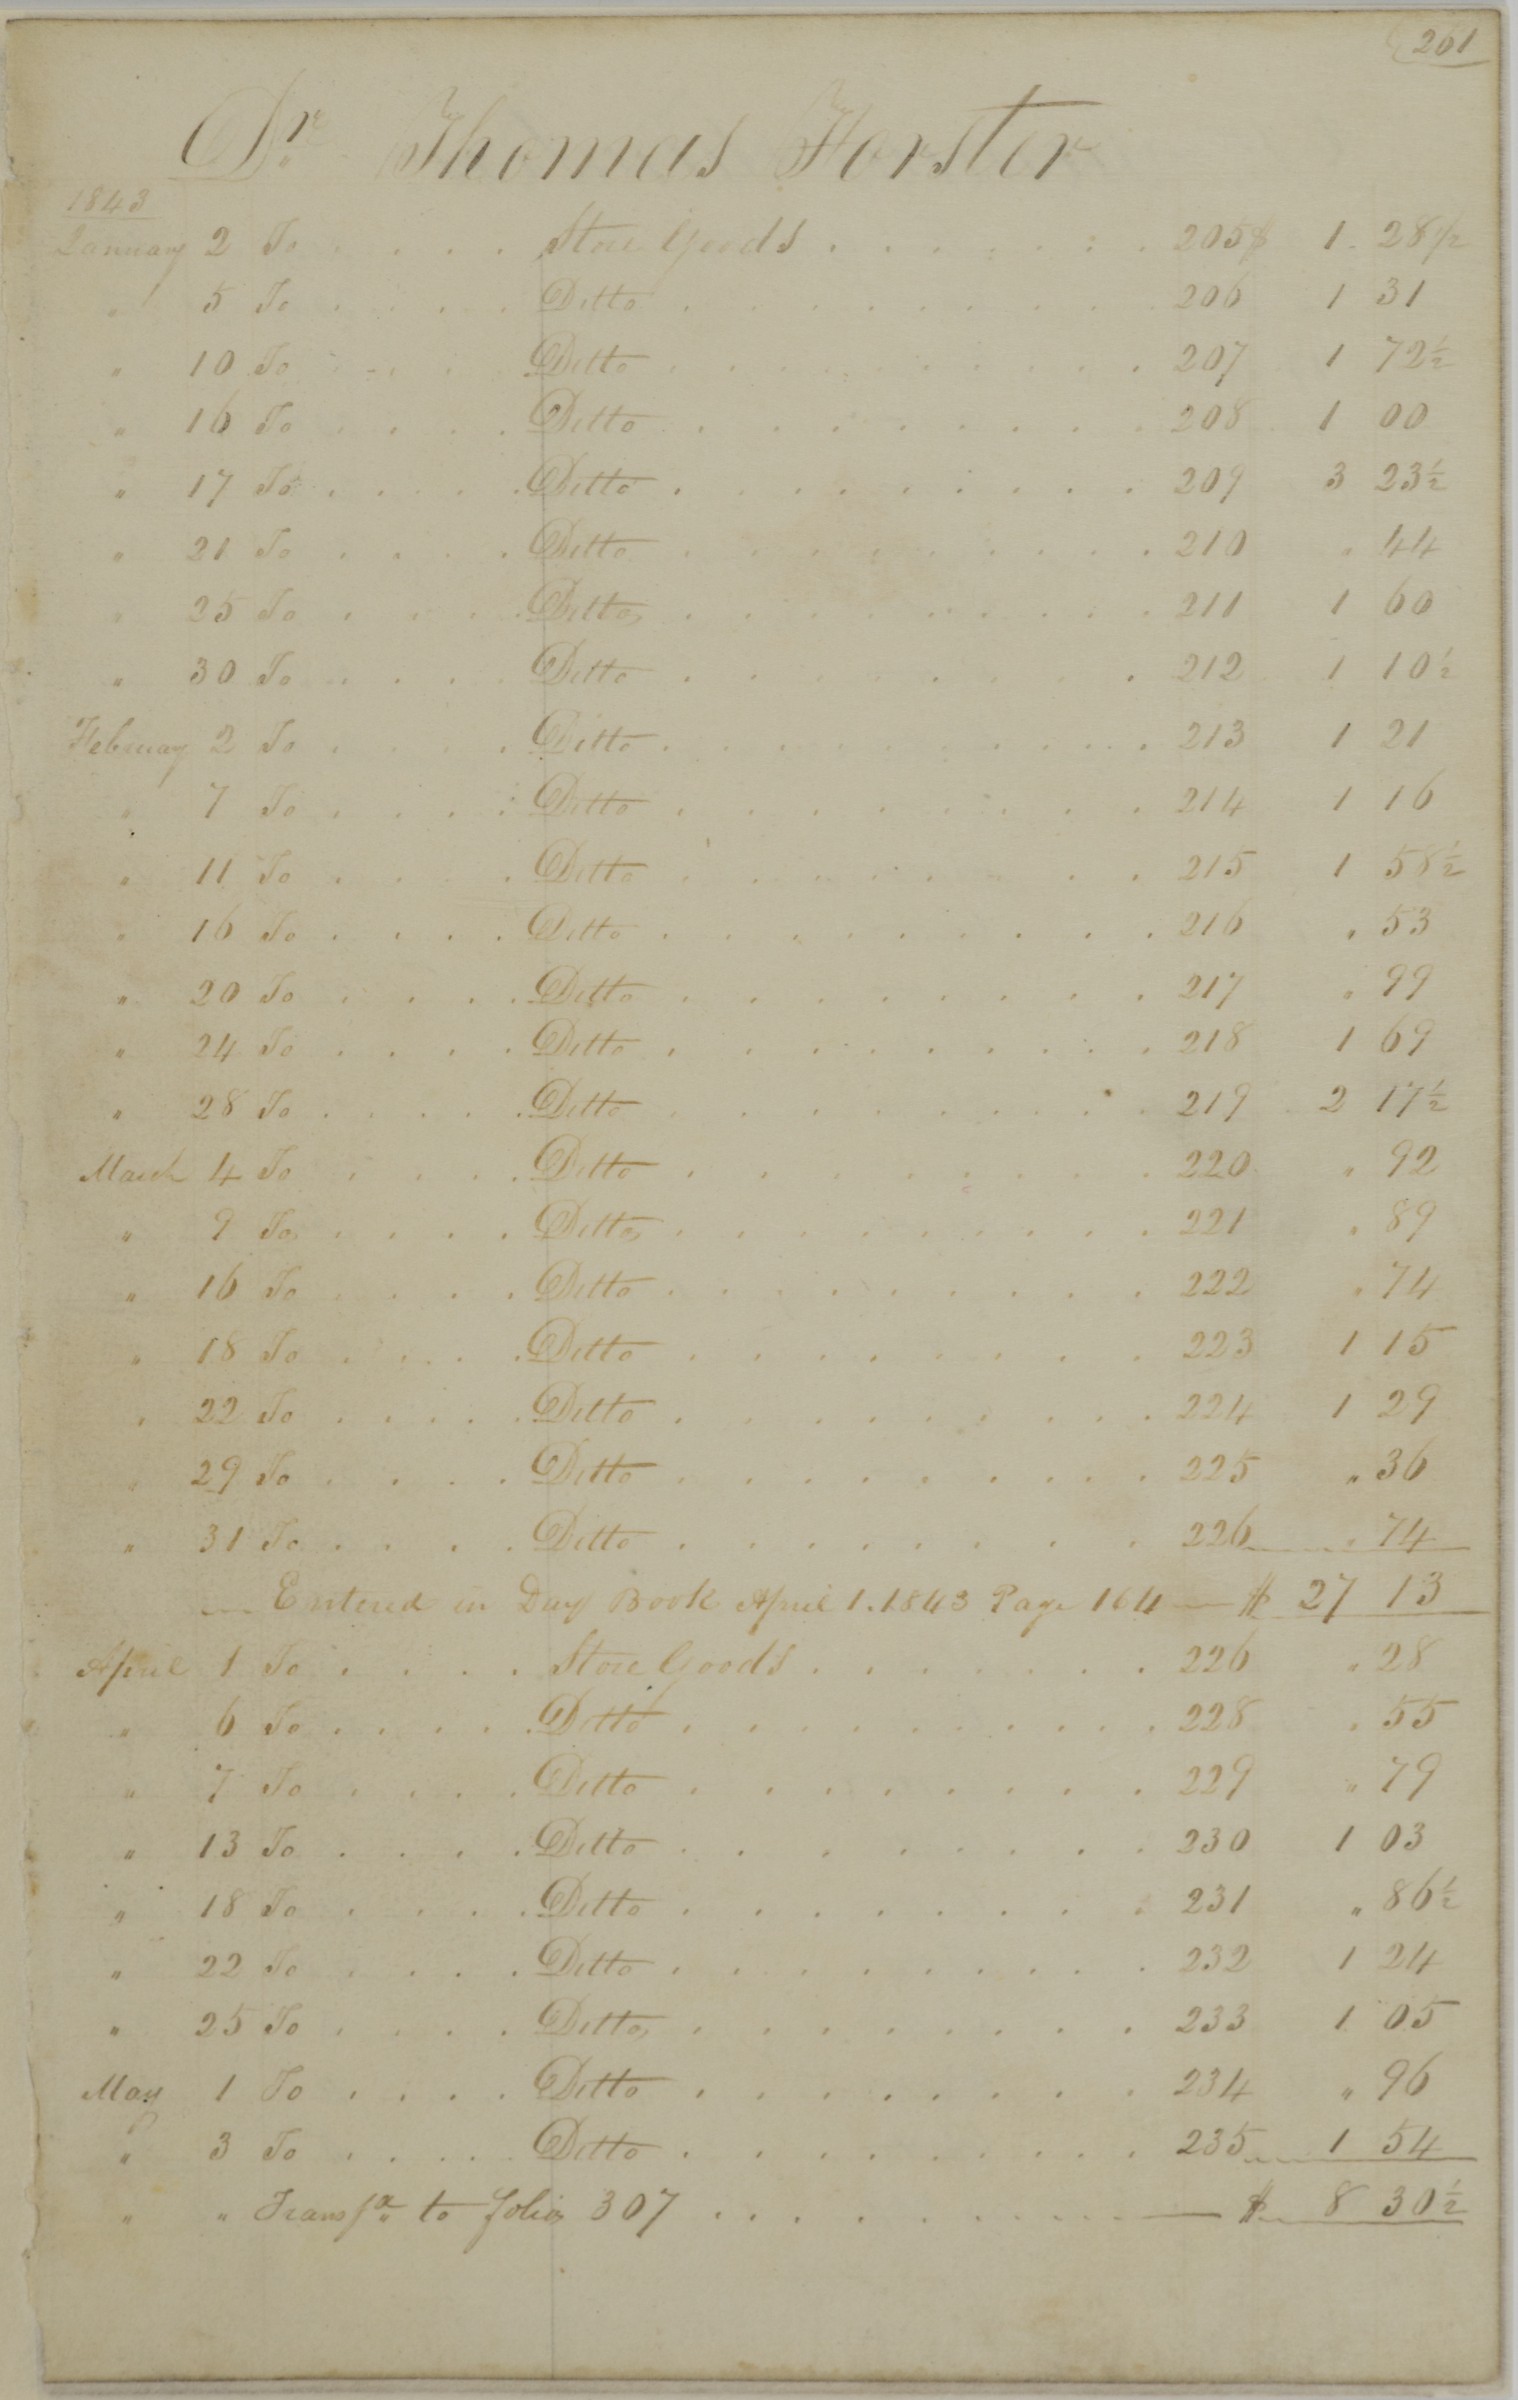 261
Dr. Thomas Forster
1843
January 2 To . . . . Store Goods . . . . . . . 205 $ 1 28 1/2
" 5 To . . . . Ditto . . . . . . . . . 206 1 31
" 10 To . . . . Ditto . . . . . . . . . 207 1 72 1/2
" 16 To . . . . Ditto . . . . . . . . . 208 1 00
" 17 To . . . . Ditto . . . . . . . . . 209 3 23 1/2
" 21 To . . . . Ditto . . . . . . . . . 210 " 44
" 25 To . . . . Ditto . . . . . . . . . 211 1 60
" 30 To . . . . Ditto . . . . . . . . . 212 1 10 1/2
February 2 To . . . . Ditto . . . . . . . . . 213 1 21
" 7 To . . . . Ditto . . . . . . . . . 214 1 16
" 11 To . . . . Ditto . . . . . . . . . 215 1 58 1/2
" 16 To . . . . Ditto . . . . . . . . . 216 " 53
" 20 To . . . . Ditto . . . . . . . . . 217 " 99
" 24 To . . . . Ditto . . . . . . . . . 218 1 69
" 28 To . . . . Ditto . . . . . . . . . 219 2 17 1/2
March 4 To . . . . Ditto . . . . . . . . . 220 " 92
" 9 To . . . . Ditto . . . . . . . . . 221 " 89
" 16 To . . . . Ditto . . . . . . . . . 222 " 74
" 18 To . . . . Ditto . . . . . . . . . 223 1 15
" 22 To . . . . Ditto . . . . . . . . . 224 1 29
" 29 To . . . . Ditto . . . . . . . . . 225 " 36
" 31 To . . . . Ditto . . . . . . . . . 226 " 74
Entered in Day Book April 1. 1843 Page 164 — $ 27 13
April 1 To . . . . Store Goods . . . . . . . 226 " 28
" 6 To . . . . Ditto . . . . . . . . . 228 " 55
" 7 To . . . . Ditto . . . . . . . . . 229 " 79
" 13 To . . . . Ditto . . . . . . . . . 230 1 03
" 18 To . . . . Ditto . . . . . . . . . 231 " 86 1/2
" 22 To . . . . Ditto . . . . . . . . . 232 1 24
" 25 To . . . . Ditto . . . . . . . . . 233 1 05
May 1 To . . . . Ditto . . . . . . . . . 234 " 96
" 3 To . . . . Ditto . . . . . . . . . 235 1 54
" " Transfr to folio 307 . . . . . . . . — $ 8 30 1/2